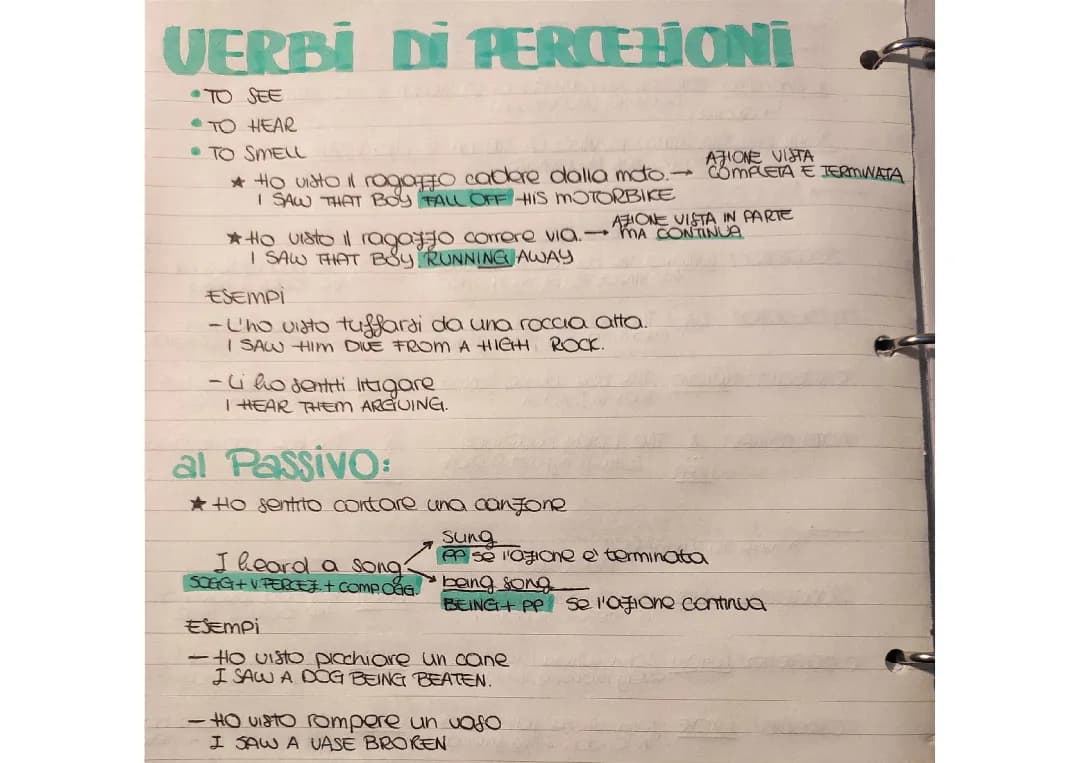 VERBI DI PERCEZIONI
• TO SEE
• TO HEAR
• TO SMELL
★ Ho visto il ragazzo cadere dalla moto. → AZIONE VISTA COMPLETA E TERMINATA
I SAW THAT BOY FALL OFF HIS MOTORBIKE
★ Ho visto il ragazzo correre via. → AZIONE VISTA IN PARTE MA CONTINUA
I SAW THAT BOY RUNNING AWAY
ESEMPI
- L'ho visto tuffarsi da una roccia alta.
I SAW HIM DIVE FROM A HIGH ROCK.
- Li ho sentiti litigare
I HEAR THEM ARGUING.
al Passivo:
★ Ho sentito cantare una canzone
sung
PP se l'azione e' terminata
I heard a song
being song
SOGG + V. PERCEZ + COMP OGG.
BEING + PP se l'azione continua
ESEMPI
- Ho visto picchiare un cane
I SAW A DOG BEING BEATEN.
- Ho visto rompere un vaso
I SAW A VASE BROKEN